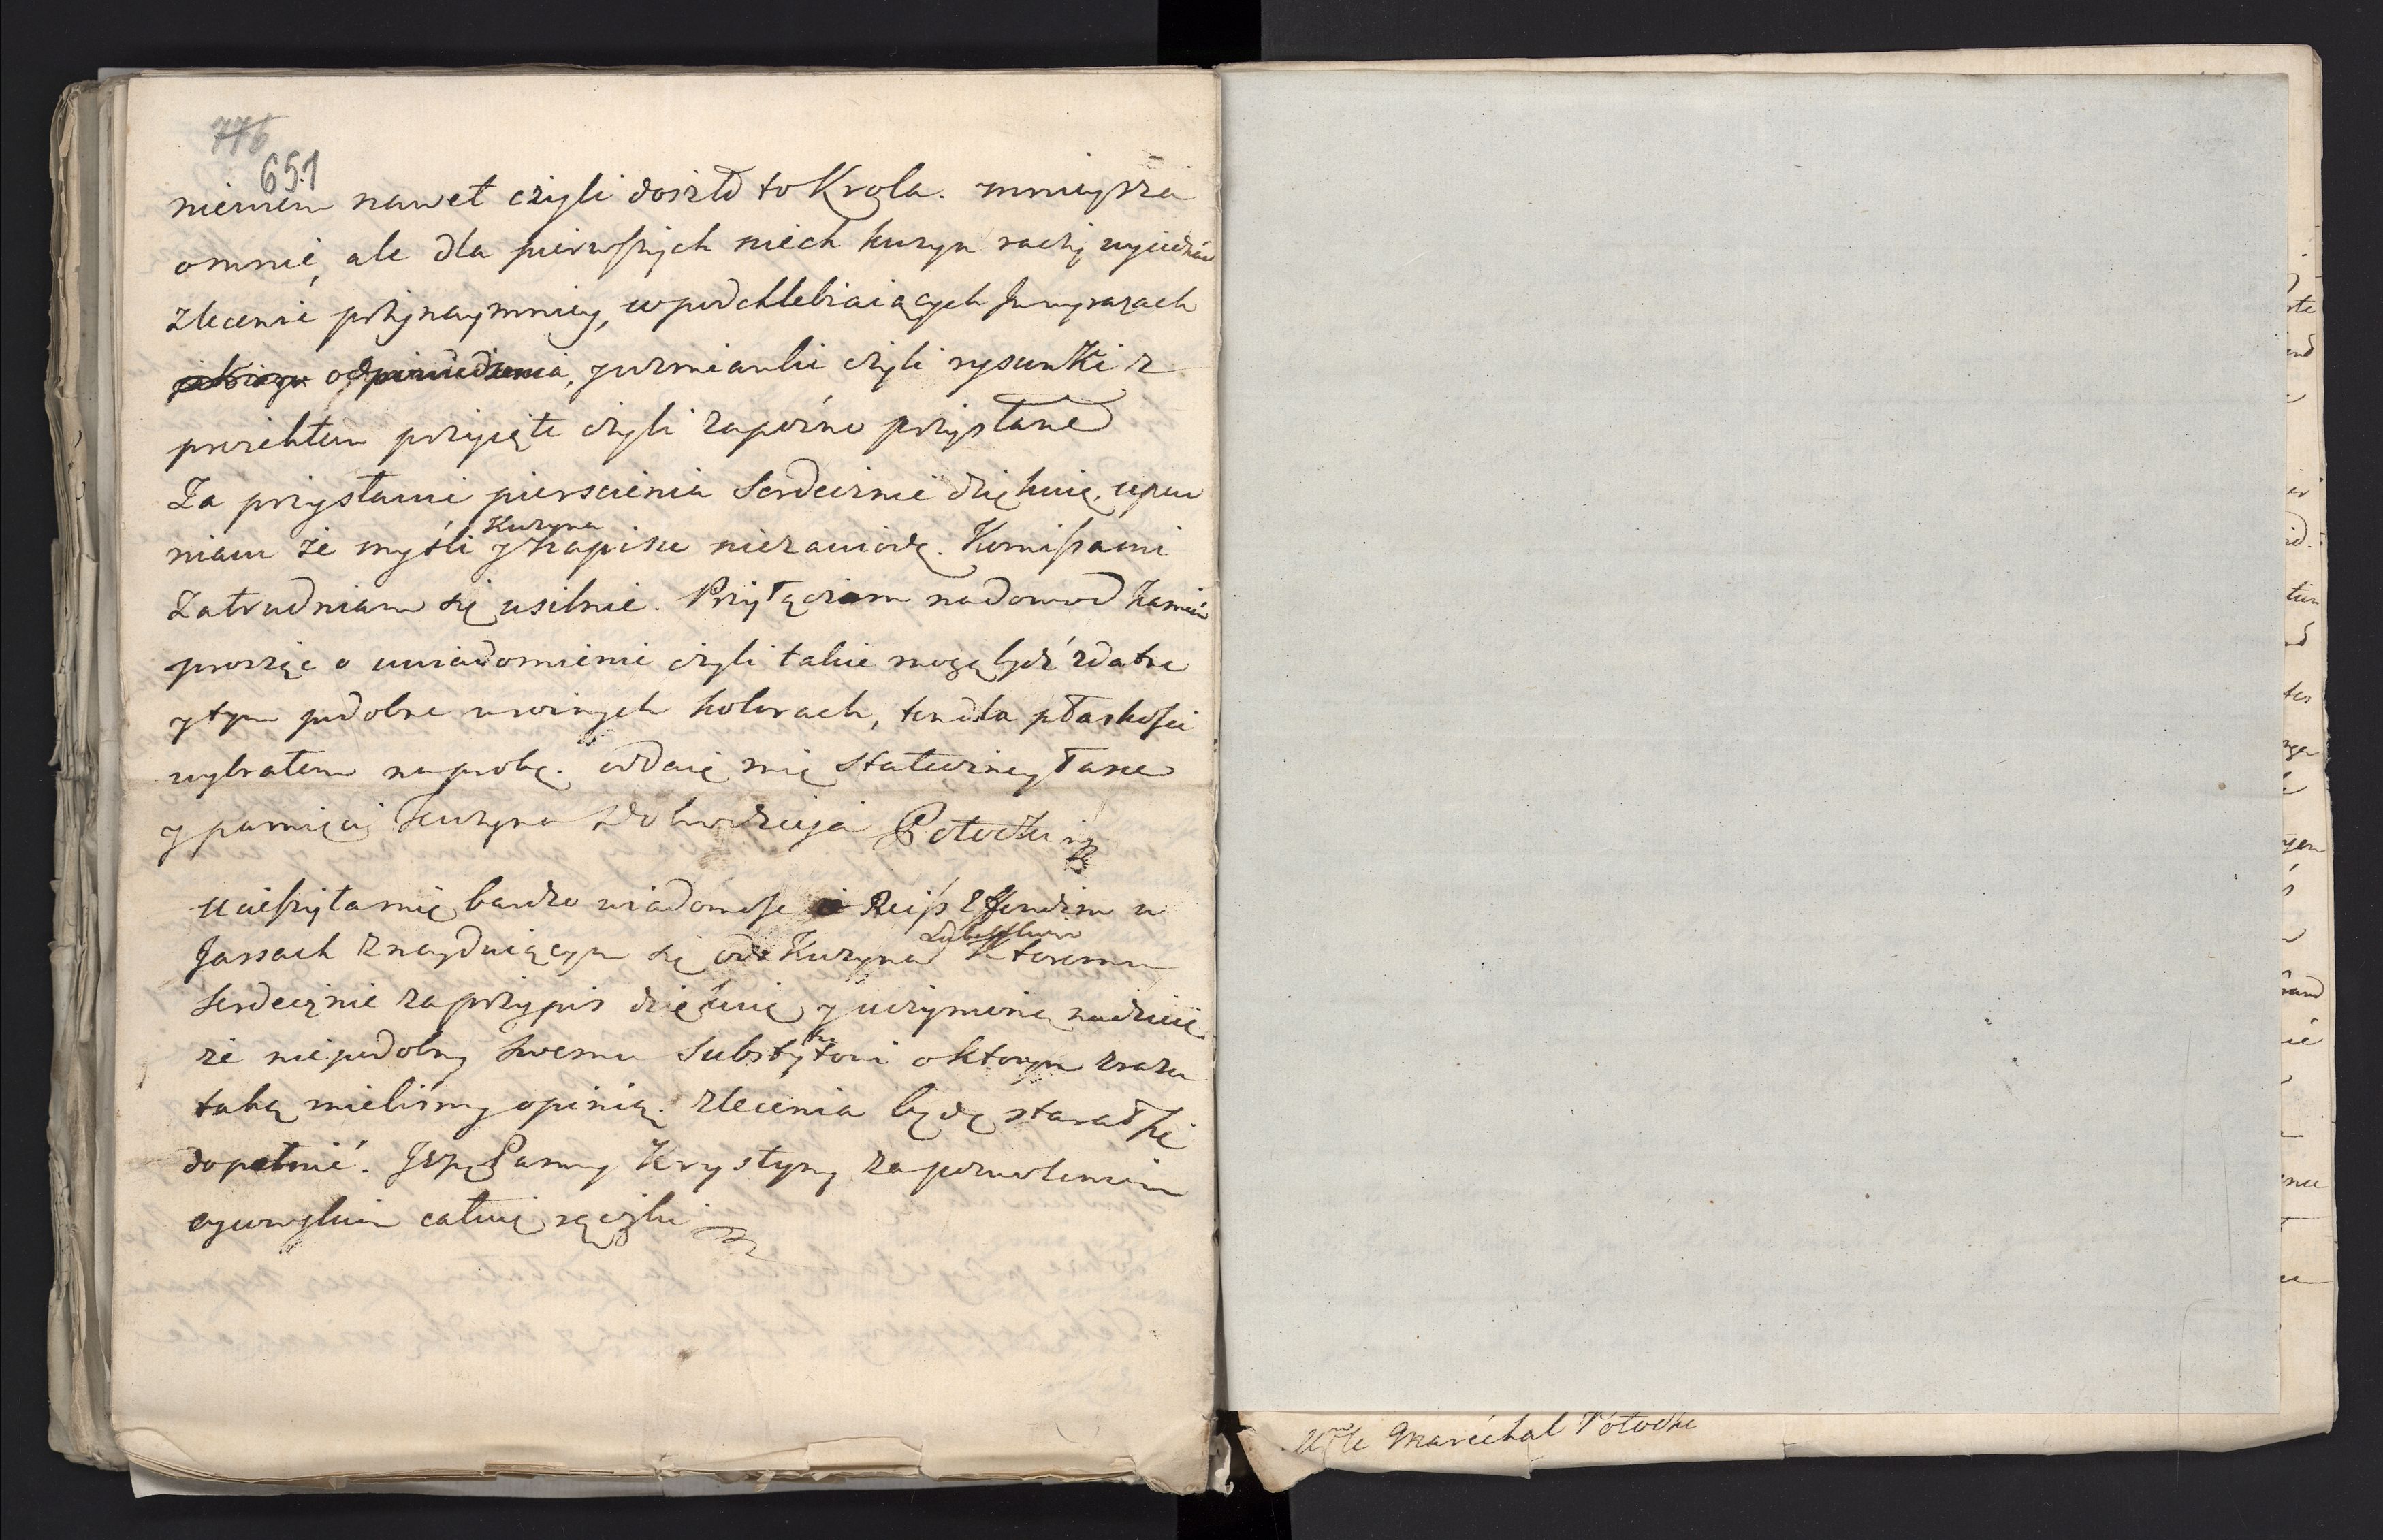 776
651
niewiem nawet czyli doszło to Krola. mnieysza
omnie, ale dla pierwszych niech kuzyn raczy wyiednać
zlecenie przynaymniey, wpodchlebiaiących Jm wyrazach
odpowiedzenia, y wzmianki czyli rysunki z
proiektem przyięte czyli zapózno przysłane
Za przysłanie pierscienia Serdecznie dziękuię, upew
niam że myśli y Kuzyna napisu niezawiodę. Komissami
Zatrudniam się usilnie. Przyłączam nadowod Kamień
prosząc o uwiadomienie czyli takie mogą bydź zdatne
y tym podobne w roznych kolorach, ten dla płaskości
wybrałem na probę. oddaię mię stateczney łasce
y pamięci Kuzyna Dobrodzieja Potocki
Ucieszyła mię bardzo wiadomość o Reiss Effendim w
Jassach znayduiącym się od Kuzyna Ktoremu
Serdecznie za przypis dziękuię y uczynioną nadzieię
że niepodobny swemu Substytutowi o ktorym zrazu
taką mieliśmy opinią. zlecenia będę starał się
dopełnić. Panny Krystyny za pozwoleniem
całuię rączki
le Maréchal Potocki